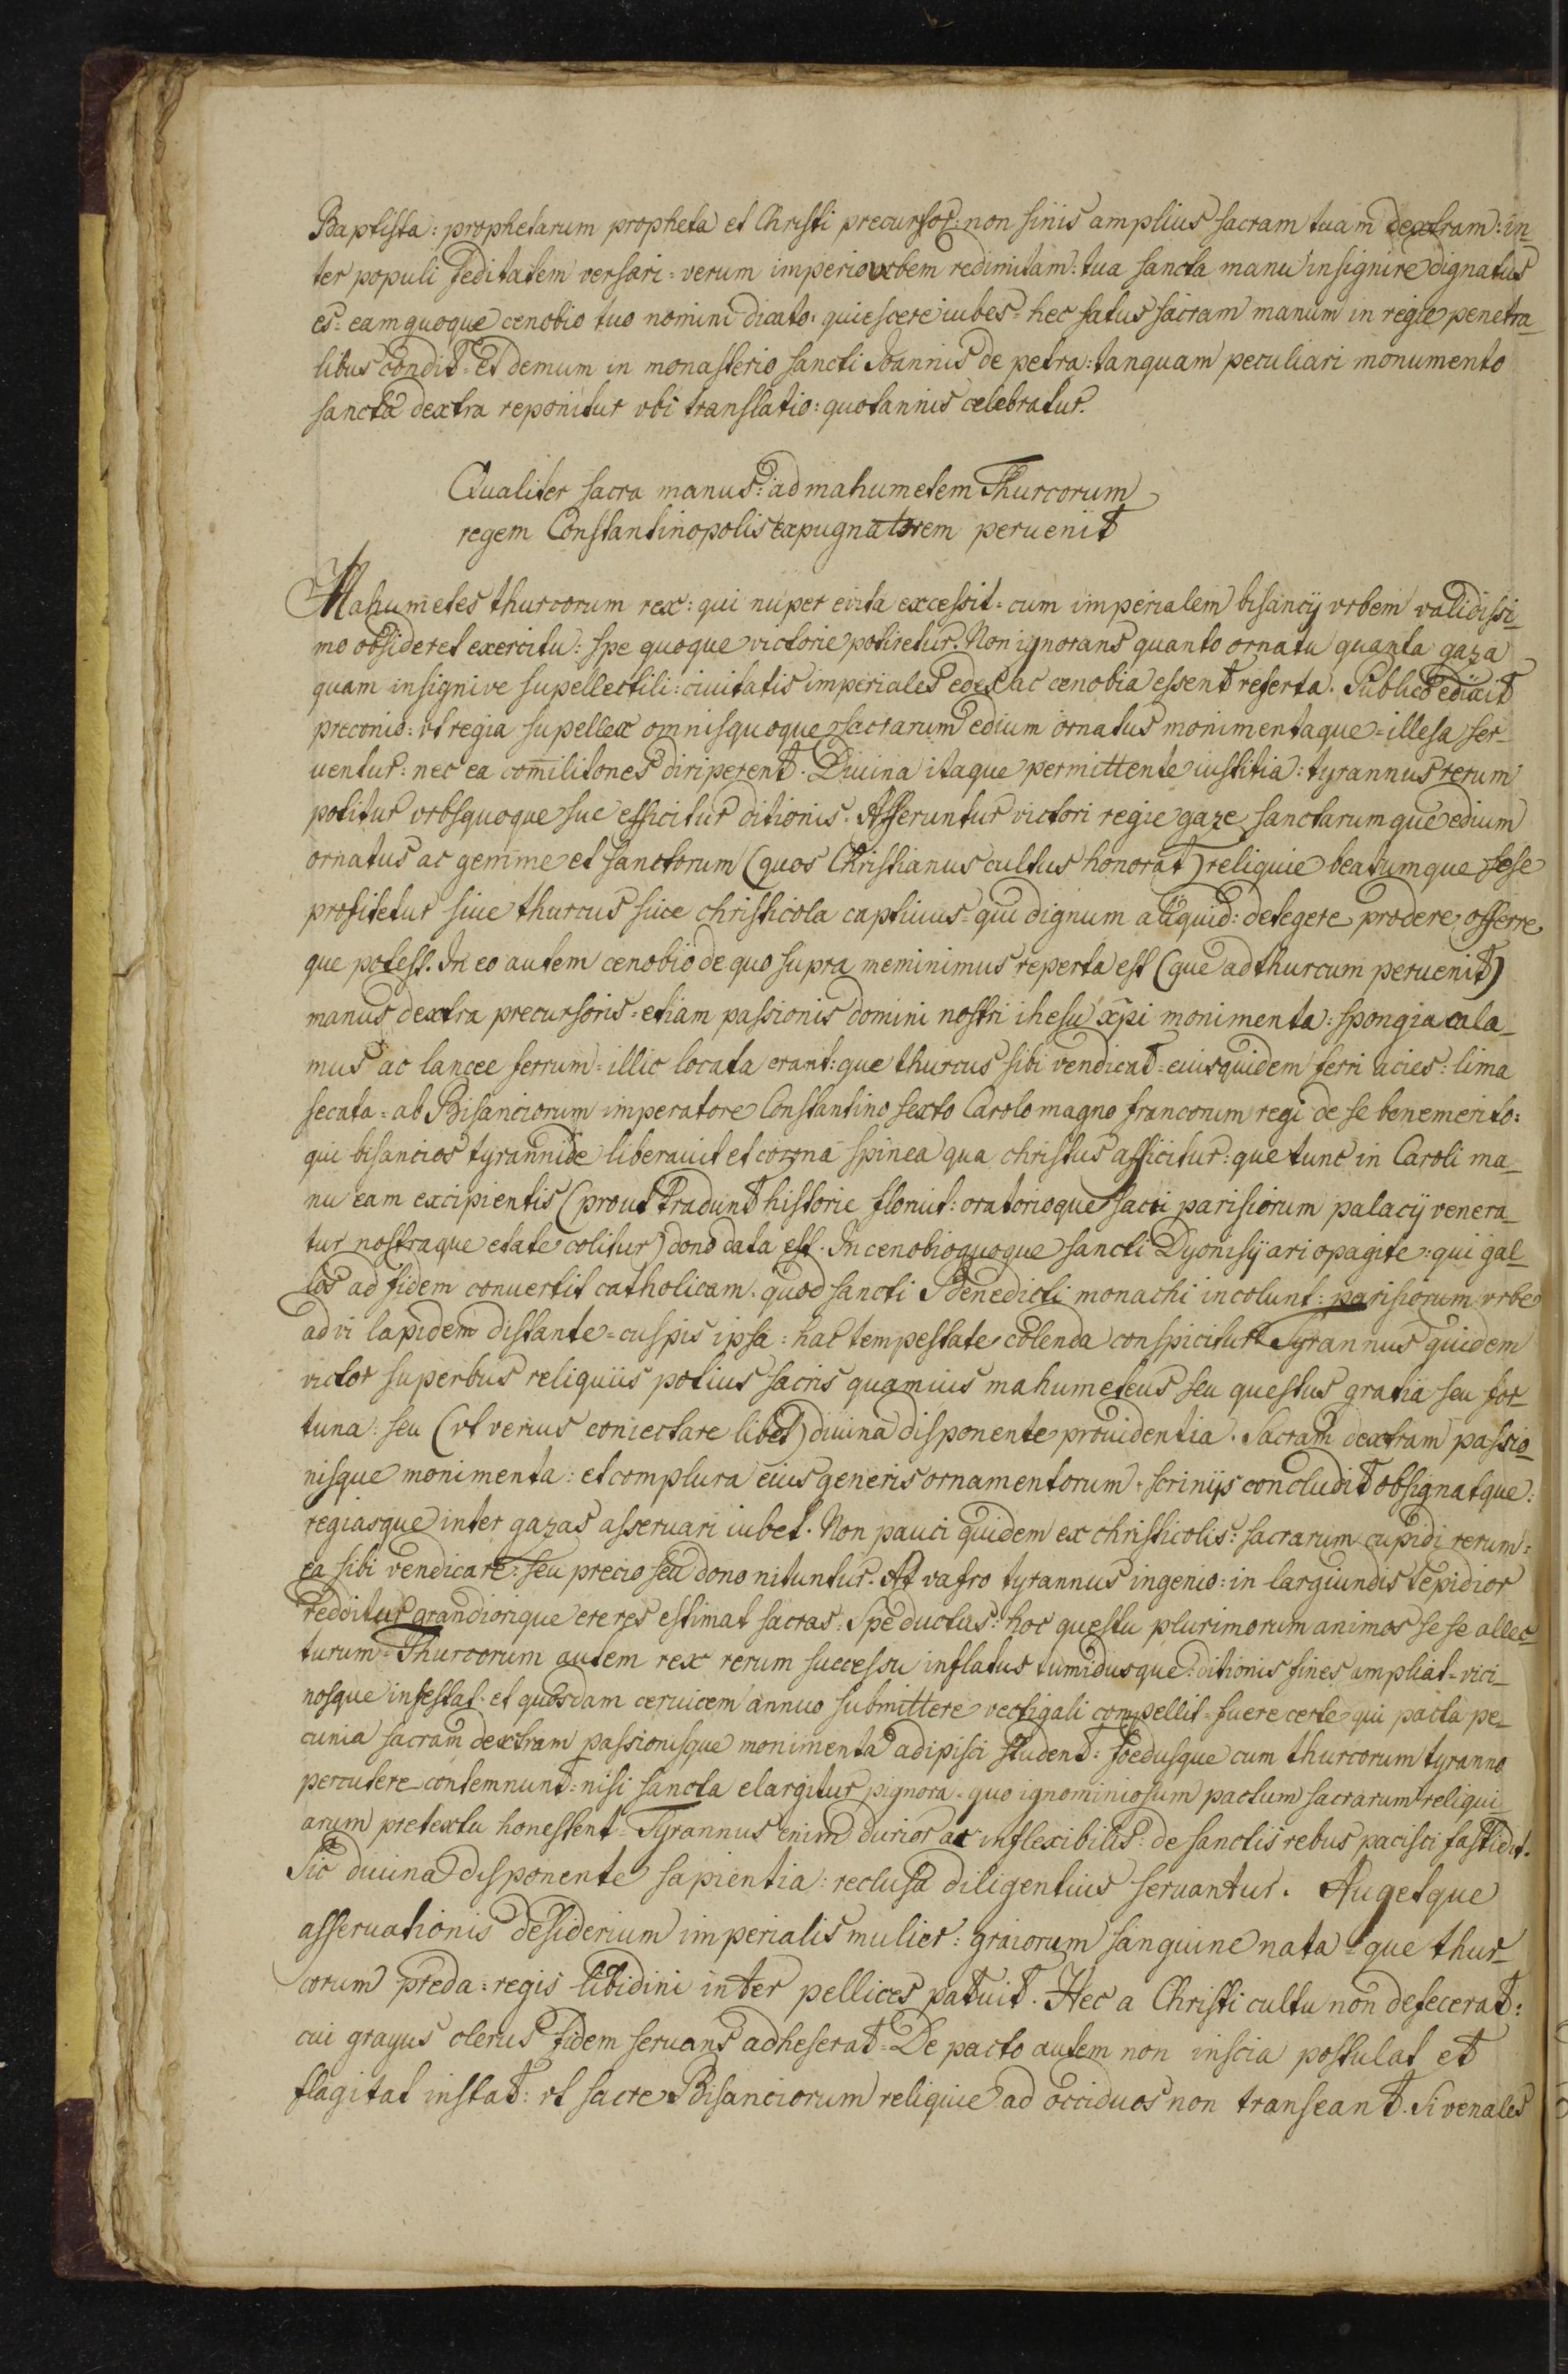 Baptista: prophetarum propheta et Christi precursor: non sinis amplius sacram tuam dextram: in-
ter populi feditatem versari = verum imperio urbem redimitam: tua sancta manu insignire dignatus
es = eam quoque cenobio tuo nomini dicato: quiescere iubes = hec fatus sacram manum in regie penetra-
libus condit = Et demum in monasterio sancti Joannis de petra: tanquam peculiari monumento
sancta dextra reponitur vbi translatio: quotannis celebratur.
Qualiter sacra manus: ad mahumetem Thurcorum
regem Constantinopolis expugnatorem peruenit
Mahumetes thurcorum rex: qui nuper e vita excessit = cum imperialem bisancij vrbem validissi-
mo obsideret exercitu: spe quoque victorie potiretur. Non ignorans quanto ornatu quanta gaza
quam insignive supellectili: ciuitatis imperiales edes ac cenobia essent referta. Publico edixit
preconio: vt regia supellex omnisquoque sacrarum edium ornatus monimentaque = illesa ser-
uentur: nec ea com̄ilitones diriperent. Diuina itaque permittente iustitia: tyrannus rerum
potitur vrbsquoque sue efficitur ditionis. Afferuntur victori regie gaze sanctarumque edium
ornatus ac gemme et sanctorum (quos Christianus cultus honorat) reliquie beatumque sese
profitetur siue thurcus siue christicola captiuus = qui dignum aliquid: detegere prodere offerre
que potest. In eo autem cenobio de quo supra meminimus reperta est (que ad thurcum peruenit)
manus dextra precursoris = etiam passionis domini nostri ihesu xp̄i monimenta: spongia cala-
mus ac lancee ferrum = illic locata erant: que thurcus sibi vendicat = euisquidem ferri acies: lima
secata = ab Bisanciorum imperatore Constantino sexto Carolo magno francorum regi de se benemerito:
qui bisancios tyrannide liberauit et corona spinea qua christus afficitur: que tunc in Caroli ma-
nu eam excipientis (prout tradunt historie floruit: oratorioque sacri parisiorum palacij venera-
tur nostraque etate colitur) dono data est. In cenobioquoque sancti Dyonisij ariopagite: qui gal-
los ad fidem conuertit catholicam. quod sancti Benedicti monachi incolunt: parisiorum vrbe
ad vi lapidem distante = cuspis ipsa: hac tempestate colenda conspicitur. Tyrannus quidem
victor superbus reliquiis potius sacris quamuis mahumeteus seu questus gratia seu for-
tuna: seu (vt verius coniectare libet) diuina disponente prouidentia. Sacram dextram passio-
nisque monimenta: et complura eius generis ornamentorum = scrinijs concludit obsignatque:
regiasque inter gazas asseruari iubet. Non pauci quidem ex christicolis: sacrarum cupidi rerum:
ea sibi vendicare: seu precio seu dono nituntur. At vafro tyrannus ingenio: in largiundis tepidior
redditur grandiorique ere res estimat sacras. Spe ductus: hoc questu plurimorum animos se se allec-
turum = Thurcorum autem rex rerum successu inflatus tumidusque: ditionis fines ampliat = vici-
nosque infestat. et quosdam ceruicem annuo submittere vectigali compellit = fuere certe qui pacta pe-
cunia sacram dextram passionisque monimenta adipisci student: foedusque cum thurcorum tyranno
percutere contemnunt = nisi sancta elargitur pignora = quo ignominiosum pactum sacrarum reliqui-
arum pretextu honestent = Tyrannus enim durior ac inflexibilis: de sanctis rebus pacisci fastidit.
Sic diuina disponente sapientia: reclusa diligentius seruantur. Augetque
asseruationis desiderium imperialis mulier: graiorum sanguine nata = que thur-
corum preda: regis libidini inter pellices patuit. Hec a Christi cultu non defecerat:
cui grayus clerus fidem seruans adheserat = De pacto autem non inscia postulat et
flagitat instat: vt sacre Bisanciorum reliquie ad occiduos non transeant. Si venales